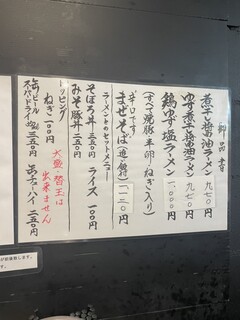 御品書
煮干し醤油ラーメン 九七〇円
ゆず煮干し醤油ラーメン 九七〇円
鶏ゆず塩ラーメン 一、〇〇〇円
(すべて焼豚・半卵・ねぎ入り)
辛口です
まぜそば(追飯付) 一、一三〇円
ラーメンとのセットメニュー
そぼろ丼 三五〇円 ライス 一〇〇円
みそ豚丼 二五〇円
トッピング
ねぎ 一〇〇円
大盛・替玉は
出来ません
缶ビール
スーパードライ 三五〇円 缶チューハイ 二五〇円